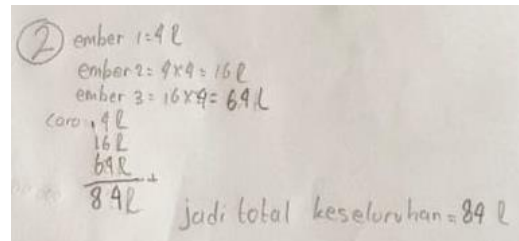 2 ember 1 = 4 l
ember 2 = 4 x 4 = 16 l
ember 3 = 16 x 4 = 64 l
cara : 4 l
16 l
64 l
+
84 l
jadi total keseluruhan = 84 l